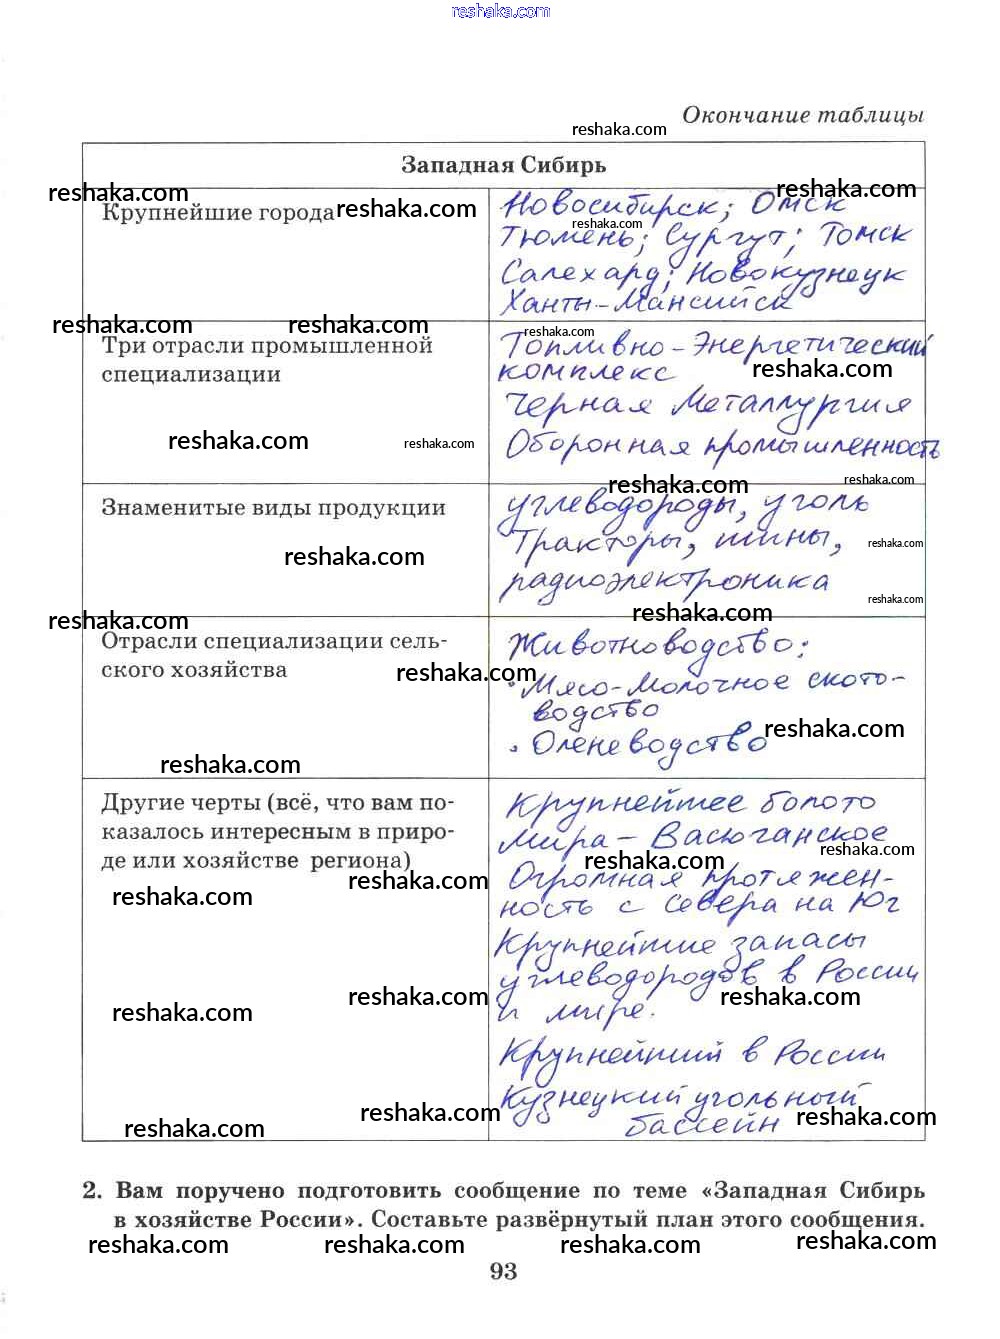 reshaka.com
Окончание таблицы
reshaka.com
Западная Сибирь
reshaka.com
reshaka.com
Крупнейшие города
reshaka.com
Новосибирск; Омск
reshaka.com
Тюмень; Сургут; Томск
Салехард; Новокузнецк
Ханты-Мансийск
reshaka.com
reshaka.com
reshaka.com
Три отрасли промышленной
специализации
Топливно-Энергетический
комплекс
reshaka.com
Черная Металлургия
reshaka.com
reshaka.com
Оборонная промышленность
reshaka.com
reshaka.com
Знаменитые виды продукции
углеводороды, уголь
Тракторы, шины,
reshaka.com
reshaka.com
радиоэлектроника
reshaka.com
reshaka.com
reshaka.com
Отрасли специализации сель-
ского хозяйства
reshaka.com
Животноводство:
• Мясо-Молочное ското-
водство
reshaka.com
• Оленеводство
reshaka.com
Другие черты (всё, что вам по-
казалось интересным в приро-
де или хозяйстве региона)
Крупнейшее болото
Мира - Васюганское
reshaka.com
reshaka.com
reshaka.com
reshaka.com
Огромная протяжен-
ность с Севера на Юг
Крупнейшие запасы
углеводородов в России
reshaka.com
reshaka.com
reshaka.com
и мире.
Крупнейший в России
Кузнецкий угольный
reshaka.com
reshaka.com
reshaka.com
бассейн
2. Вам поручено подготовить сообщение по теме «Западная Сибирь
в хозяйстве России». Составьте развёрнутый план этого сообщения.
reshaka.com
reshaka.com
reshaka.com
reshaka.com
93